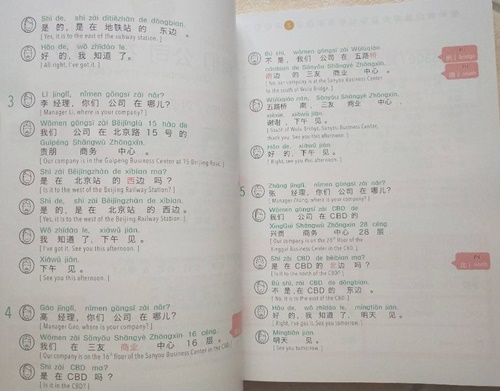 Shì de, shì zài dìtiězhàn de dōngbian.
是 的, 是 在 地铁站 的 东边 。
[ Yes, it is to the east of the subway station. ]
Hǎo de, wǒ zhīdào le.
好 的, 我 知道 了。
[ All right, I've got it. ]
3
Lǐ jīnglǐ, nǐmen gōngsī zài nǎr?
李 经理, 你们 公司 在 哪儿?
[ Manager Li, where is your company? ]
Wǒmen gōngsī zài Běijīnglù 15 hào de
我们 公司 在 北京路 15 号 的
Guìpéng Shāngwù Zhōngxīn.
贵朋 商务 中心 。
[ Our company is in the Guipeng Business Center at 15 Beijing Road. ]
Shì zài Běijīngzhàn de xībian ma?
是 在 北京站 的 西边 吗?
[ Is it to the west of the Beijing Railway Station? ]
Shì de, shì zài Běijīngzhàn de xībian.
是 的, 是 在 北京站 的 西边 。
[ Yes, it is to the west of the Beijing Railway Station. ]
Wǒ zhīdào le, xiàwǔ jiàn.
我 知道 了, 下午 见 。
[ I've got it. See you this afternoon. ]
Xiàwǔ jiàn.
下午 见 。
[ See you this afternoon. ]
4
Gāo jīnglǐ, nǐmen gōngsī zài nǎr?
高 经理, 你们 公司 在 哪儿?
[ Manager Gao, where is your company? ]
Wǒmen zài Sānyǒu Shāngyè Zhōngxīn 16 céng.
我们 在 三友 商业 中心 16 层 。
[ Our company is on the 16th floor of the Sanyou Business Center in the CBD. ]
Shì zài CBD ma?
是 在 CBD 吗?
[ Is it in the CBD? ]
Bú shì, wǒmen gōngsī zài Wǔlùqiáo
不 是, 我们 公司 在 五路桥
nánbian de Sānyǒu Shāngyè Zhōngxīn.
边 的 三友 商业 中心 。
to the south of Wulu Bridge. ]
Wǔlùqiáo nán, Sānyǒu Shāngyè Zhōngxīn,
五路桥 南, 三友 商业 中心,
xièxie, xiàwǔ jiàn.
谢谢, 下午 见 。
[ South of Wulu Bridge, Sanyou Business Center,
thank you. See you this afternoon. ]
Hǎo de, xiàwǔ jiàn.
好 的, 下午 见 。
[ Right, see you this afternoon. ]
5
Zhāng jīnglǐ, nǐmen gōngsī zài nǎr?
张 经理, 你们 公司 在 哪儿?
[ Manager Zhang, where is your company? ]
Wǒmen gōngsī zài CBD de
我们 公司 在 CBD 的
Xīngguì Shāngwù Zhōngxīn 28 céng.
兴贵 商务 中心 28 层
[ Our company is on the 28th floor of the
Xinggui Business Center in the CBD. ]
Shì zài CBD de běibian ma?
是 在 CBD 的 北边 吗?
[ Is it to the north of the CBD? ]
Bú shì, zài CBD de dōngbian.
不 是, 在 CBD 的 东边 。
[ No, it is to the east of the CBD. ]
Hǎo de, wǒ zhīdào le, míngtiān jiàn.
好 的, 我 知道 了, 明天 见 。
[ Right, I've got it. See you tomorrow. ]
Míngtiān jiàn.
明天 见 。
[ See you tomorrow. ]